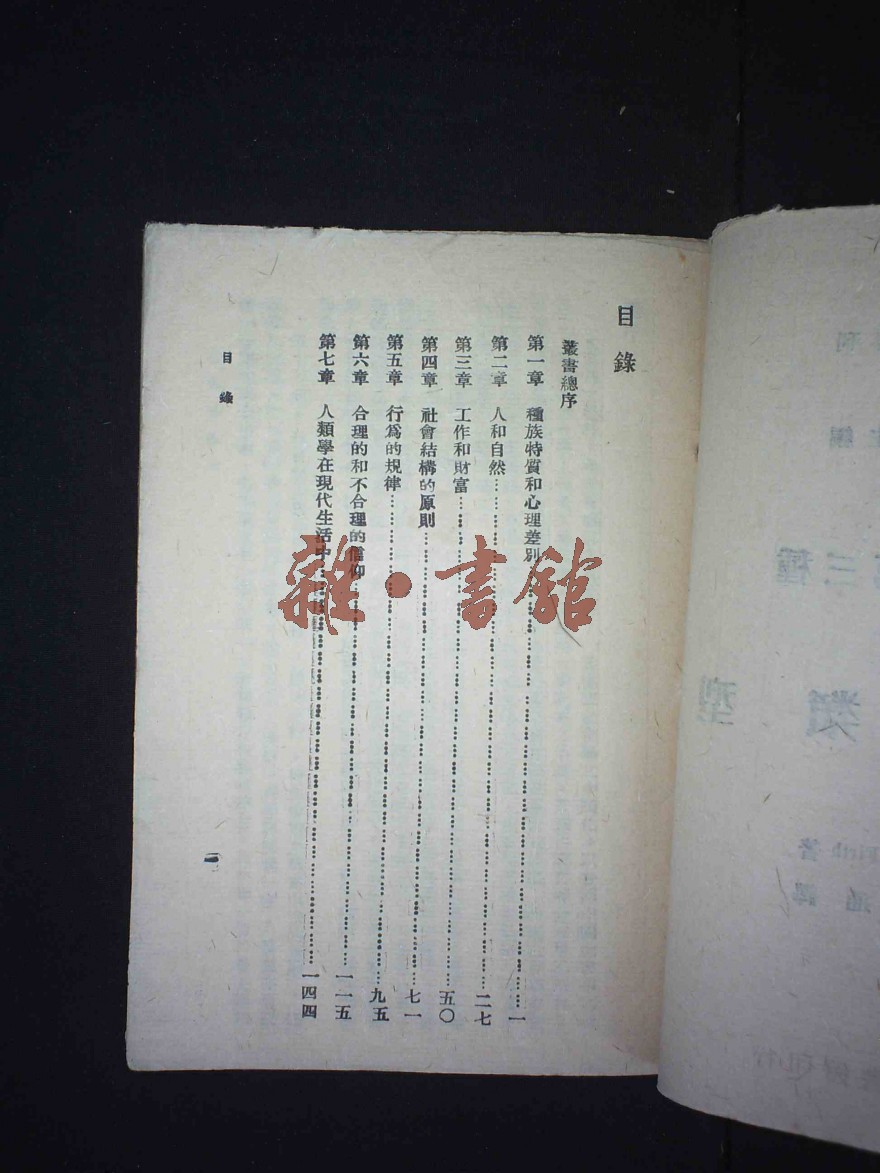 目錄
叢書總序
第一章 種族特質和心理差別……一
第二章 人和自然……二七
第三章 工作和財富……五〇
第四章 社會結構的原則……七一
第五章 行爲的規律……九五
第六章 合理的和不合理的信仰……一一五
第七章 人類學在現代生活中……一四四
目錄
一
雜·書館
三種
類型
者
譯